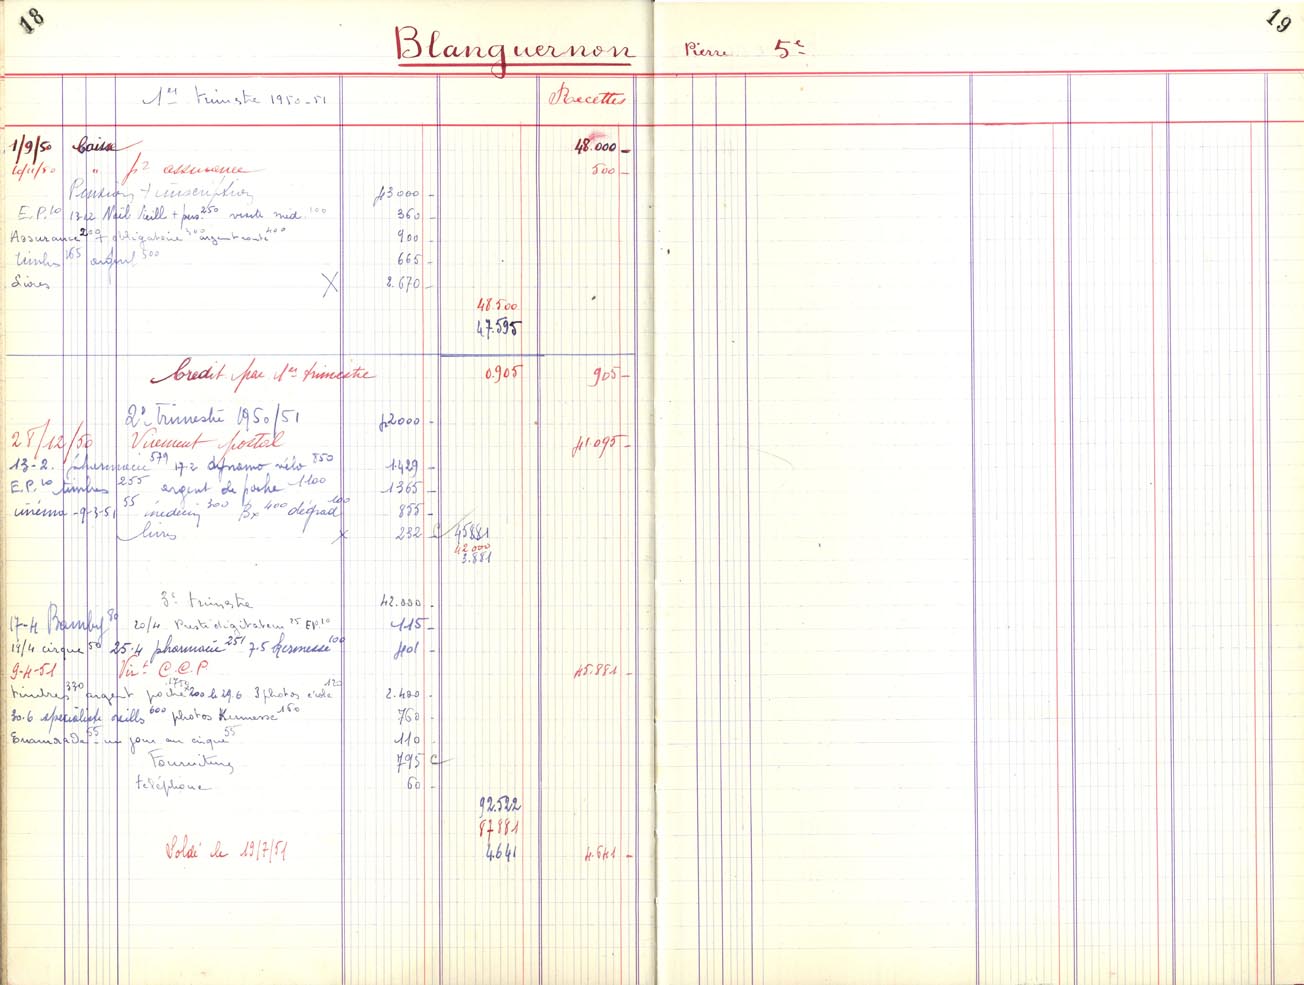 18
19
Blanguernon Pierre 5e
1er trimstre 1950-51 Recettes
1/9/50 Caisse 48.000 -
10/11/50 " pr assurance 500 -
Pension + inscription 43000 -
E.P.10 13-12 Noël vieill + pers.250 visite med. 100 360 -
Assurance 200 + obligatoire 300 argent route 400 900 -
timbres 165 argent 500 665 -
Livres X 2.670 -
48.500
47.595
Credit par 1er trimestre 0.905 905 -
2e Trimestre 1950/51 42000 -
28/12/50 Virement postal 41.095 -
13-2. pharmacie 579 17-2 dynamo vélo 850 1429 -
E.P.10 timbres 255 argent de poche 1100 1365 -
cinéma - 9-3-51 55 médecin 300 Bx 400 dégrad 100 855 -
livres x 232 C 45881
42000
3.881
3e trimestre 42.000 .
17-4 Bamby 80 20/4 Prestidigitateur 25 EP.10 115 -
19/4 cirque 50 25-4 pharmacie 251 7.5 Kermesse 100 401 -
9-4-51 Virt C.C.P. 45.881 -
timbres 330 argent poche 1750 200 le 29.6 3 photos école 120 2.400 -
30.6 spécialiste oreills 600 photos Kermesse 160 760 -
55 - un jour au cirque 55 110 -
Fournitures 795 C
téléphone 60 -
92.522
87881
Soldé le 19/7/51 4641 4.641 -